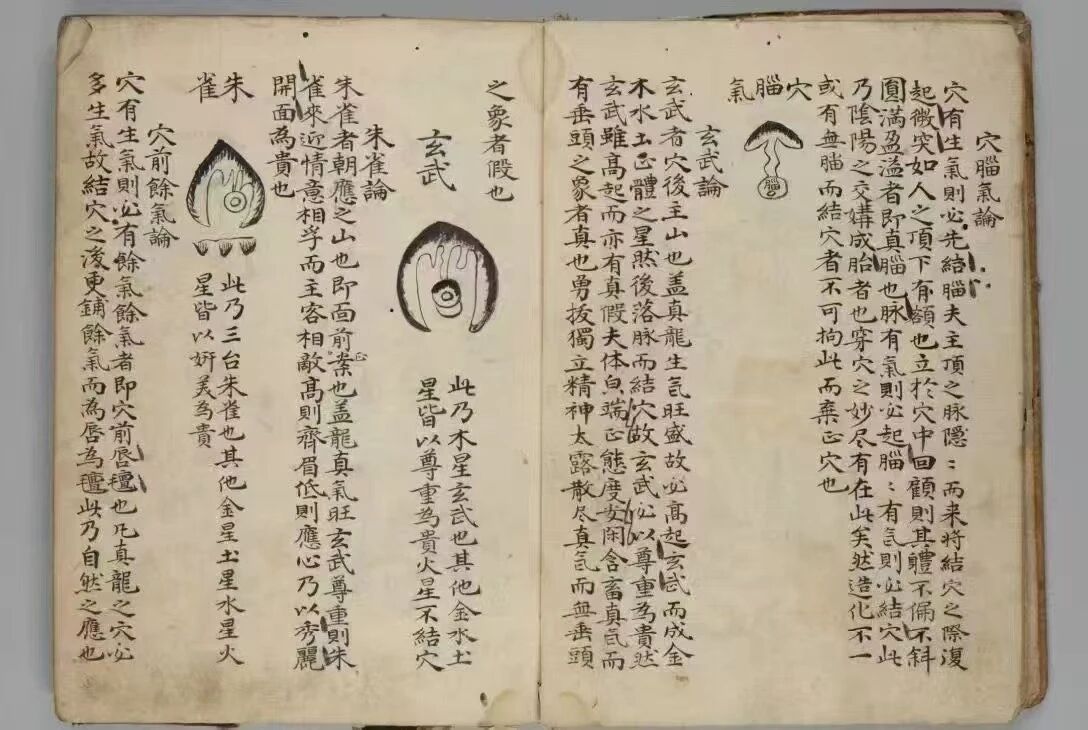 穴腦氣論
穴有生氣則必先結腦夫主頂之脉隱：而来將結穴之際復
起微突如人之頂下有額也立於穴中回顧則其軆不偏不斜
圓滿盈溢者即真腦也脉有氣則必起腦：有氣則必結穴此
乃陰陽之交媾成胎者也穿穴之妙尽有在此矣然造化不一
或有無腦而結穴者不可拘此而棄正穴也
穴腦氣
腦
玄武論
玄武者穴後主山也盖真龍生氣旺盛故必高起玄武而成金
木水土正體之星然後落脉而結穴故玄武必以尊重為貴然
玄武雖高起而亦有真假夫体皃端正態度安閑含畜真氣而
有垂頭之象者真也勇拔獨立精神太露散尽真氣而無垂頭
之象者假也
玄武
此乃木星玄武也其他金水土
星皆以尊重為貴火星不結穴
朱雀論
朱雀者朝應之山也即面前正案也盖龍真氣旺玄武尊重則朱
雀來迎情意相孚而主客相敵高則齊眉低則應心乃以秀麗
開面為貴也
朱雀
此乃三台朱雀也其他金星土星水星火
星皆以妍美為貴
穴前餘氣論
穴有生氣則必有餘氣餘氣者即穴前唇氊也凡真龍之穴必
多生氣故結穴之後更鋪餘氣而為唇為氊此乃自然之應也